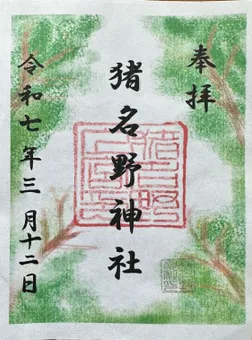 奉拝
猪名野神社
令和七年三月十二日